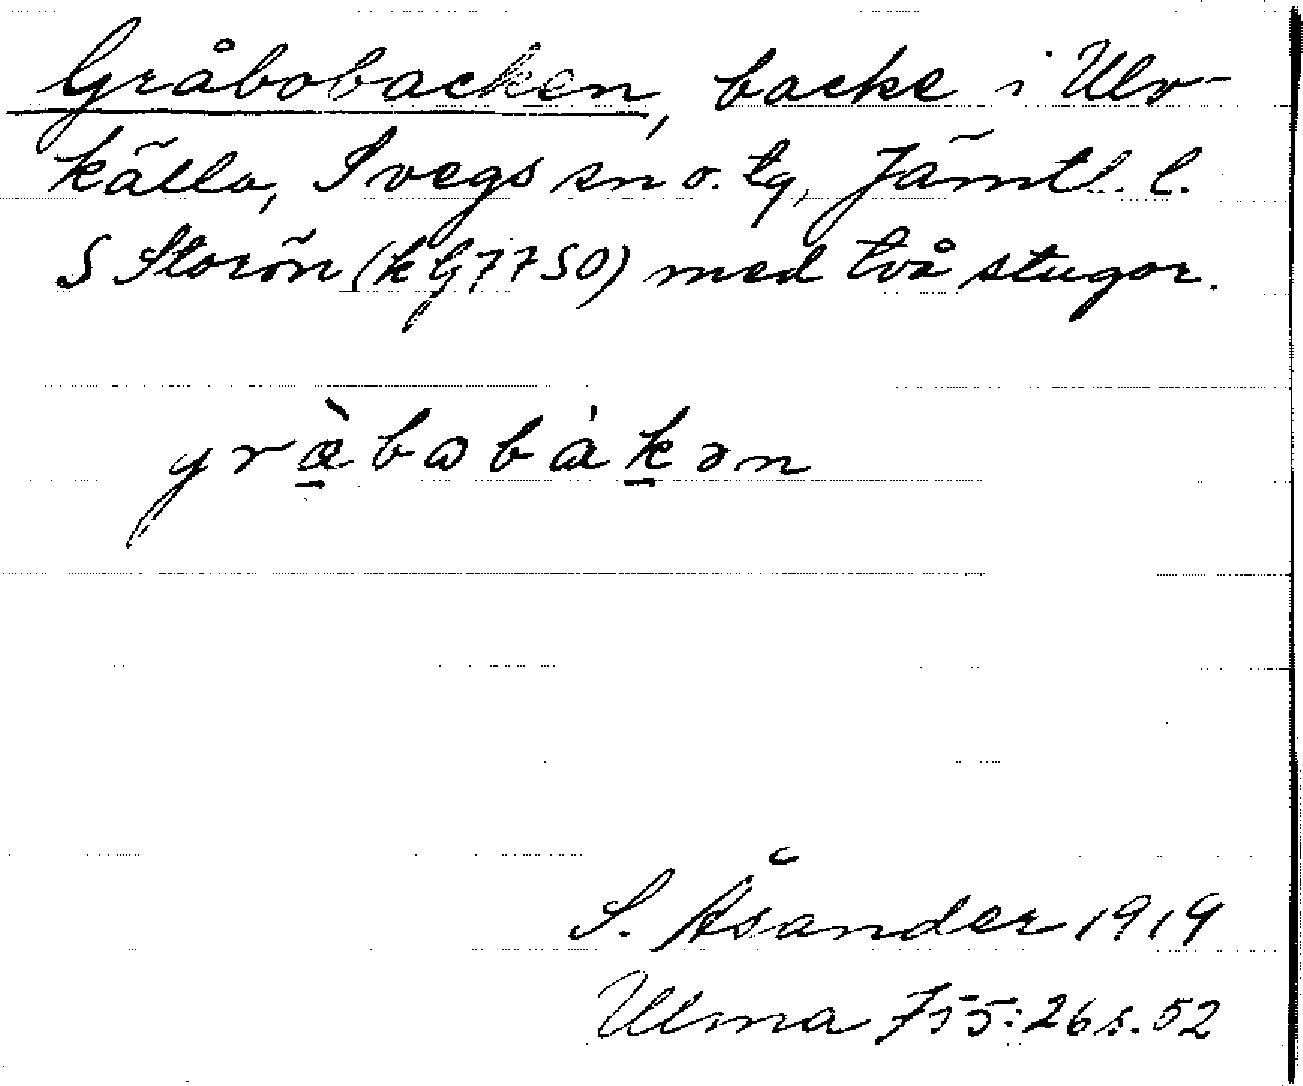 Gråbobacken, backe i Ulv-
källa, Svegs sn o. tg, Jämtl. l.
S Storön (kG7750) med två stugor.
græ̀bobàkən
S. Åsander 1919
Ulma 755:26 s. 52